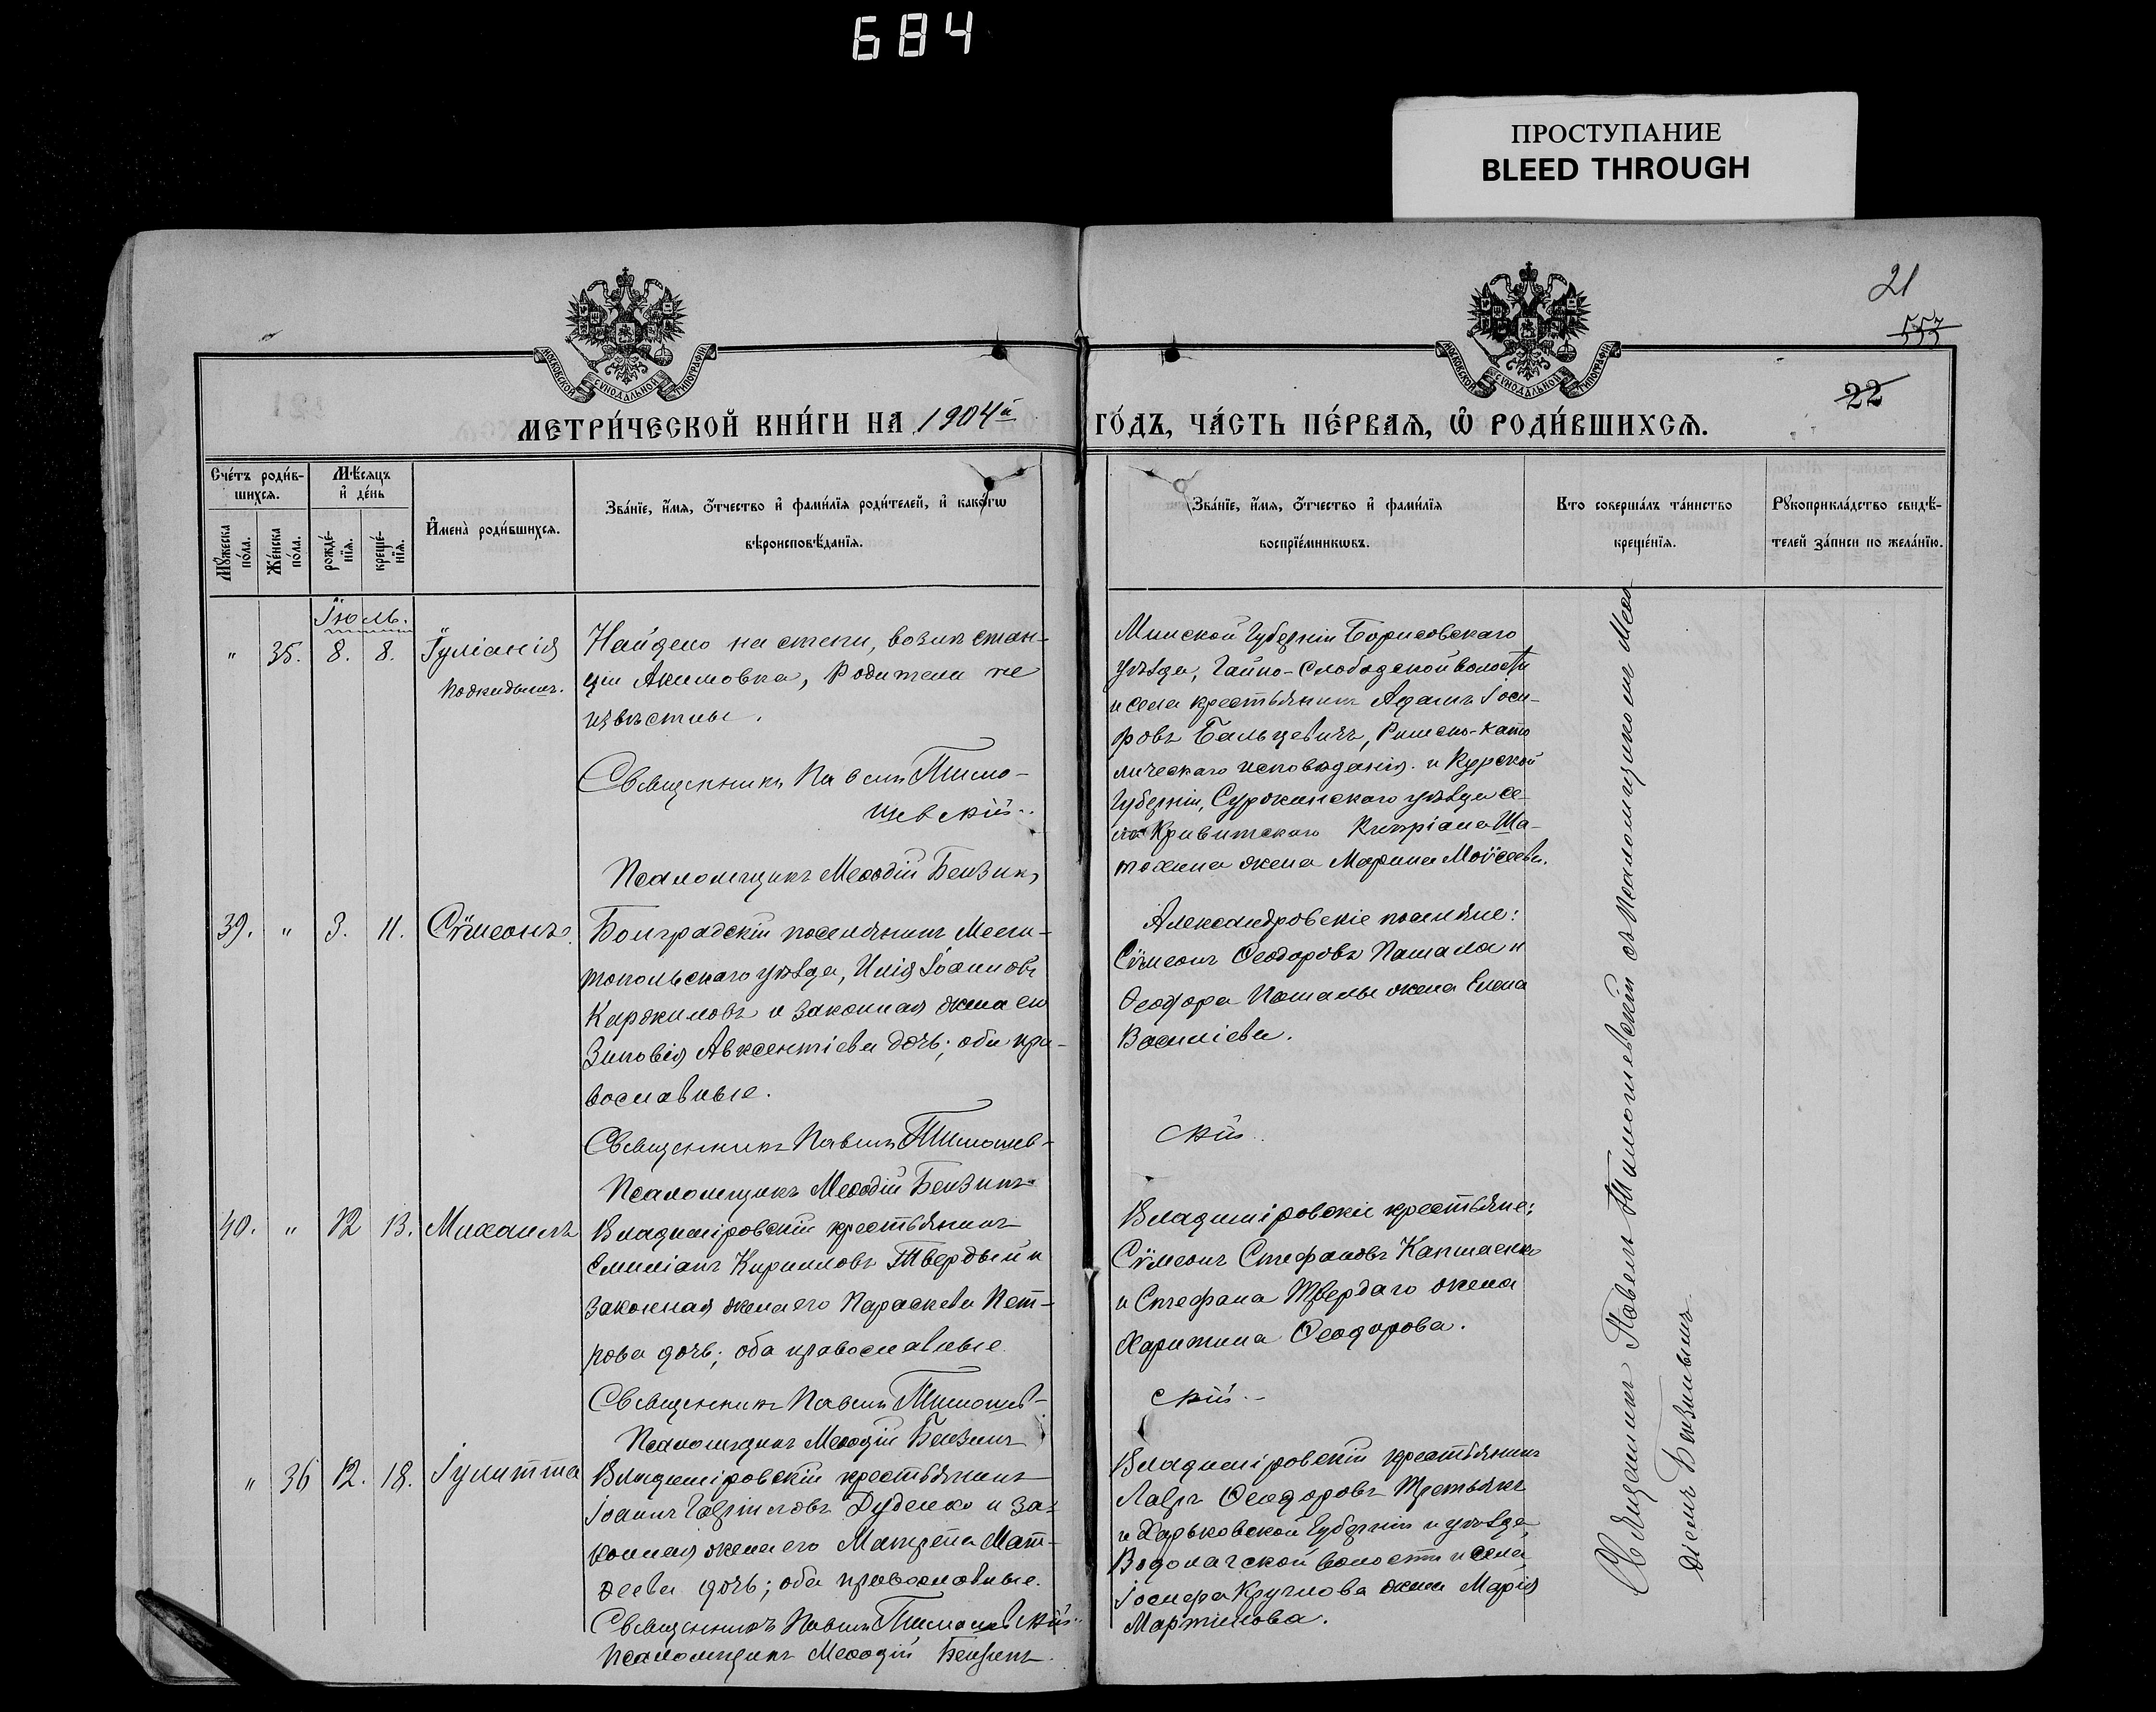 684
ПРОСТУПАНИЕ
BLEED THROUGH
21
557
22
МОСКОВСКОЙ СѴНОДАЛЬНОЙ ТИПОГРАФІИ
МОСКОВСКОЙ СѴНОДАЛЬНОЙ ТИПОГРАФІИ
МЕТРИ́ЧЕСКОЙ КНИ́ГИ НА 1904й ГО́ДЪ, ЧА́СТЬ ПЕ́РВАѦ, Ѡ҆ РОДИ́ВШИХСѦ.
Сче́тъ роди́в-
шихсѧ.
Мꙋ́жеска
по́ла.
Же́нска
по́ла.
Мѣ́сяцъ
и҆ де́нь
рожде́-
нїѧ.
креще́-
нїѧ.
И҆мена̀ роди́вшихсѧ.
Зва́нїе, и҆́мѧ, ѻ҆́тчество и҆ фами́лїѧ роди́телей, и҆ како́гѡ
вѣроисповѣ́данїѧ.
Зва́нїе, и҆́мѧ, ѻ҆́тчество и҆ фами́лїѧ
воспрїе́мникѡвъ.
Кто соверша́лъ та́инство
креще́нїѧ.
Рꙋкоприкла́дство свидѣ́-
телей за́писи по жела́нїю.
Іюль.
" 35. 8. 8. Іуліанія
подкидышъ.
Найдено на степи, возлѣ стан-
ціи Акимовка, Родители не
извѣстны.
Священникъ Павелъ Тимо-
шевскій
Псаломщикъ Меѳодій Бензинъ
Минской Губерніи Борисовскаго
уѣзда, Гайно-Слободской волости
и села крестьянинъ Адамъ Іоси-
фовъ Бальцевичъ, Римско-като
лическаго исповѣданія. и Курской
Губерніи, Суджанскаго уѣзда се-
ла Кривитскаго Кипріана Ша-
тохина жена Марина Моѵсеева.
39. " 3. 11. Сѵмеонъ
Болградскій поселянинъ Мели-
топольскаго уѣзда, Илія Іоанновъ
Каржиловъ и законная жена его
Зиновія Авксентіева дочь; оба пра-
вославные.
Священникъ Павелъ Тимошев-
скій
Псаломщикъ Меѳодій Бензинъ
Александровскіе поселяне:
Сѵмеонъ Ѳеодоровъ Пашала и
Ѳеодора Пашалы жена Елена
Василіева.
40. " 12 13. Михаилъ
Владиміровскій крестьянинъ
Емиліанъ Кирилловъ Твердый и
законная жена его Параскева Пет-
рова дочь; оба православные
Священникъ Павелъ Тимошев-
скій
Псаломщикъ Меѳодій Бензинъ
Владиміровскіе крестьяне:
Сѵмеонъ Стефановъ Капшаенко
и Стефана Твердаго жена
Харитина Ѳеодорова.
" 36 12. 18. Іулитта
Владиміровскій крестьянинъ
Іоаннъ Гавріиловъ Дуденко и за-
конная жена его Матрена Мат-
ѳеева дочь; оба православные.
Священникъ Павелъ Тимошевскій
Псаломщикъ Меѳодій Бензинъ
Владиміровскій крестьянинъ
Лавръ Ѳеодоровъ Третьякъ
и Харьковской Губерніи и уѣзда,
Водолагской волости и села
Іосифа Круглова жена Марія
Мартинова.
Священникъ Павелъ Тимошевскій съ Псаломщикомъ Меѳо
діемъ Бензинымъ.